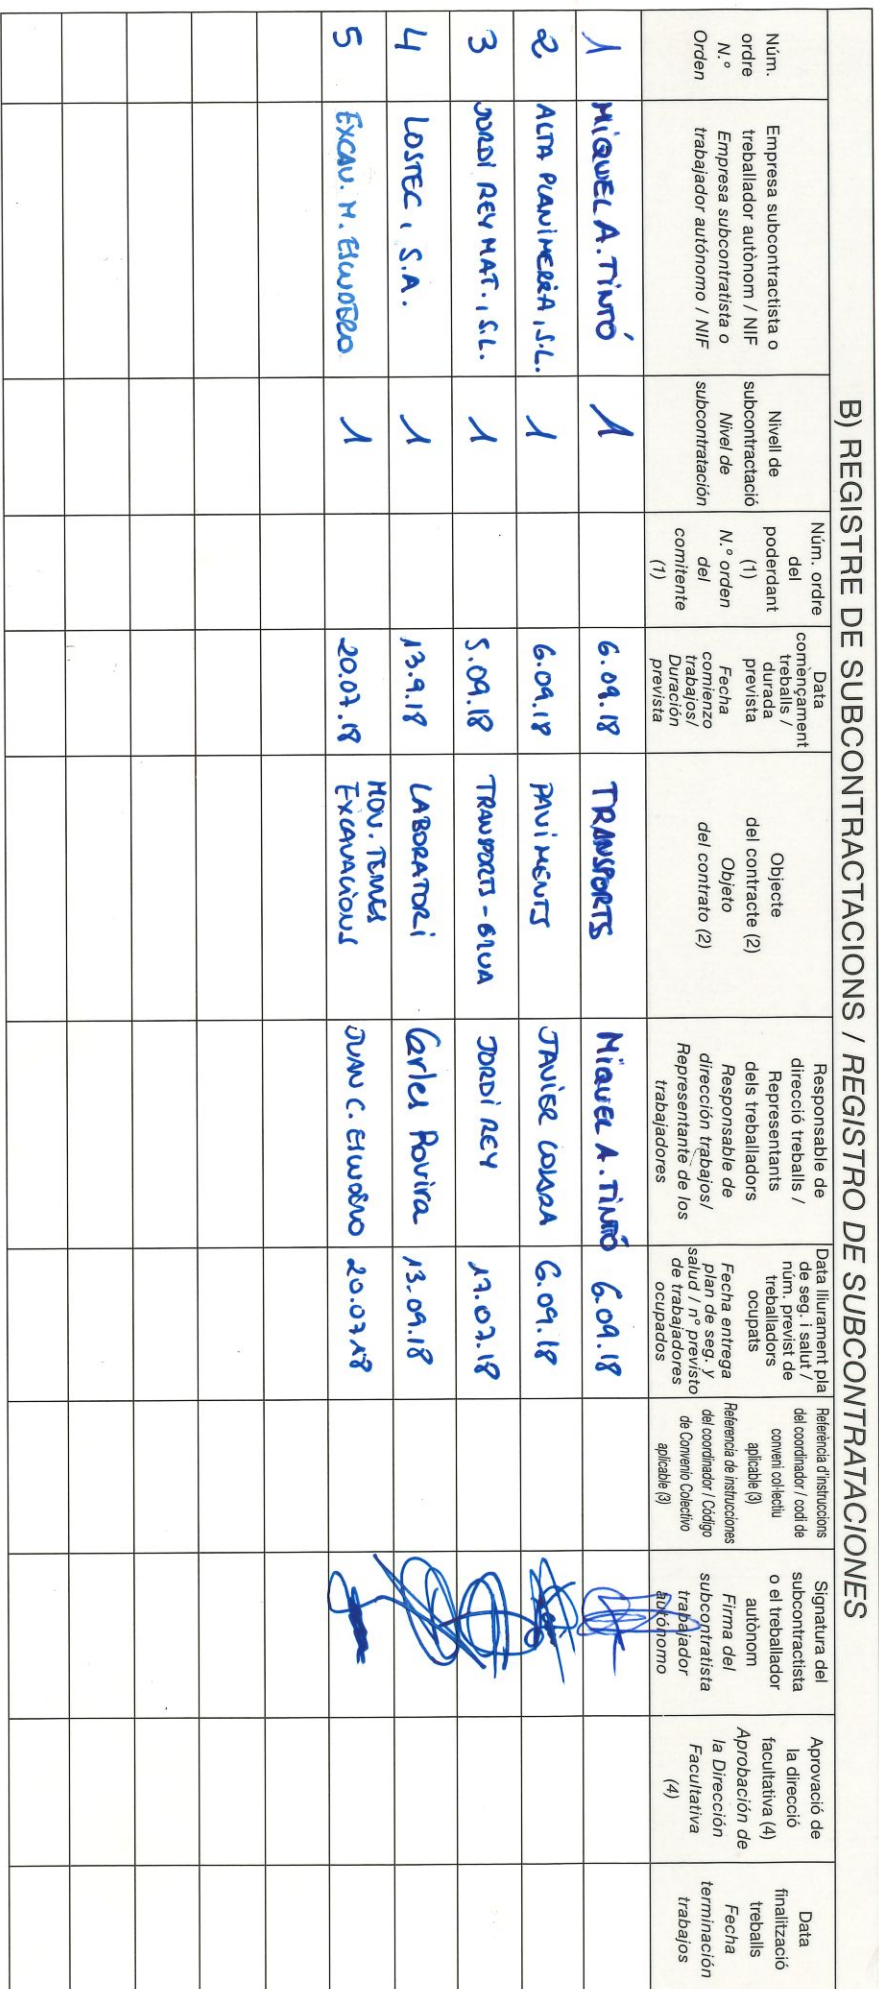 B) REGISTRE DE SUBCONTRACTACIONS / REGISTRO DE SUBCONTRATACIONES
Núm.
ordre
N.º
Orden
Empresa subcontractista o
treballador autònom / NIF
Empresa subcontratista o
trabajador autónomo / NIF
Nivell de
subcontractació
Nivel de
subcontratación
Núm. ordre
del
poderdant
(1)
N.º orden
del
comitente
(1)
Data
començament
treballs /
durada
prevista
Fecha
comienzo
trabajos/
Duración
prevista
Objecte
del contracte (2)
Objeto
del contrato (2)
Responsable de
direcció treballs /
Representants
dels treballadors
Responsable de
dirección trabajos/
Representante de los
trabajadores
Data lliurament pla
de seg. i salut /
núm. previst de
treballadors
ocupats
Fecha entrega
plan de seg. y
salud / nº previsto
de trabajadores
ocupados
Referència d'instruccions
del coordinador / codi de
conveni col·lectiu
aplicable (3)
Referencia de instrucciones
del coordinador / Código
de Convenio Colectivo
aplicable (3)
Signatura del
subcontractista
o el treballador
autònom
Firma del
subcontratista
trabajador
autónomo
Aprovació de
la direcció
facultativa (4)
Aprobación de
la Dirección
Facultativa
(4)
Data
finalització
treballs
Fecha
terminación
trabajos
1 MIQUEL A. TINTÓ 1 6.09.18 TRANSPORTS MIQUEL A. TINTÓ 6.09.18
2 ALTA PLANIMERIA, S.L. 1 6.09.18 PAVIMENTS JAVIER 6.09.18
3 JORDI REY MAT., S.L. 1 5.09.18 TRANSPORTS - GRUA JORDI REY 17.07.18
4 LOSTEC, S.A. 1 13.9.18 LABORATORI Carles Rovira 13.09.18
5 EXCAV. M. ESCUDERO 1 20.07.18 MOV. TERRES
EXCAVACIONS JUAN C. ESCUDERO 20.07.18